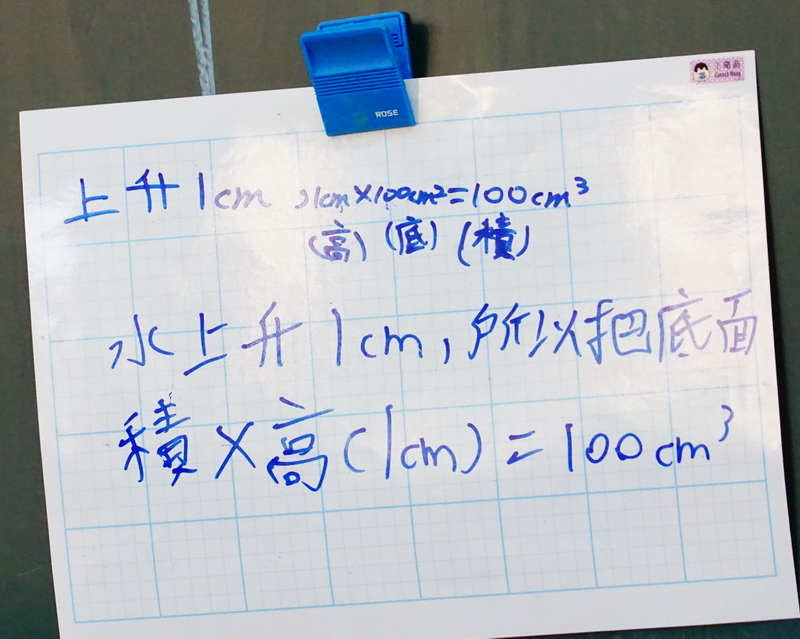 ROSE
上升1cm,1cm×100cm²=100cm³
(高)(底)(積)
水上升1cm,所以把底面
積×高(1cm)=100cm³